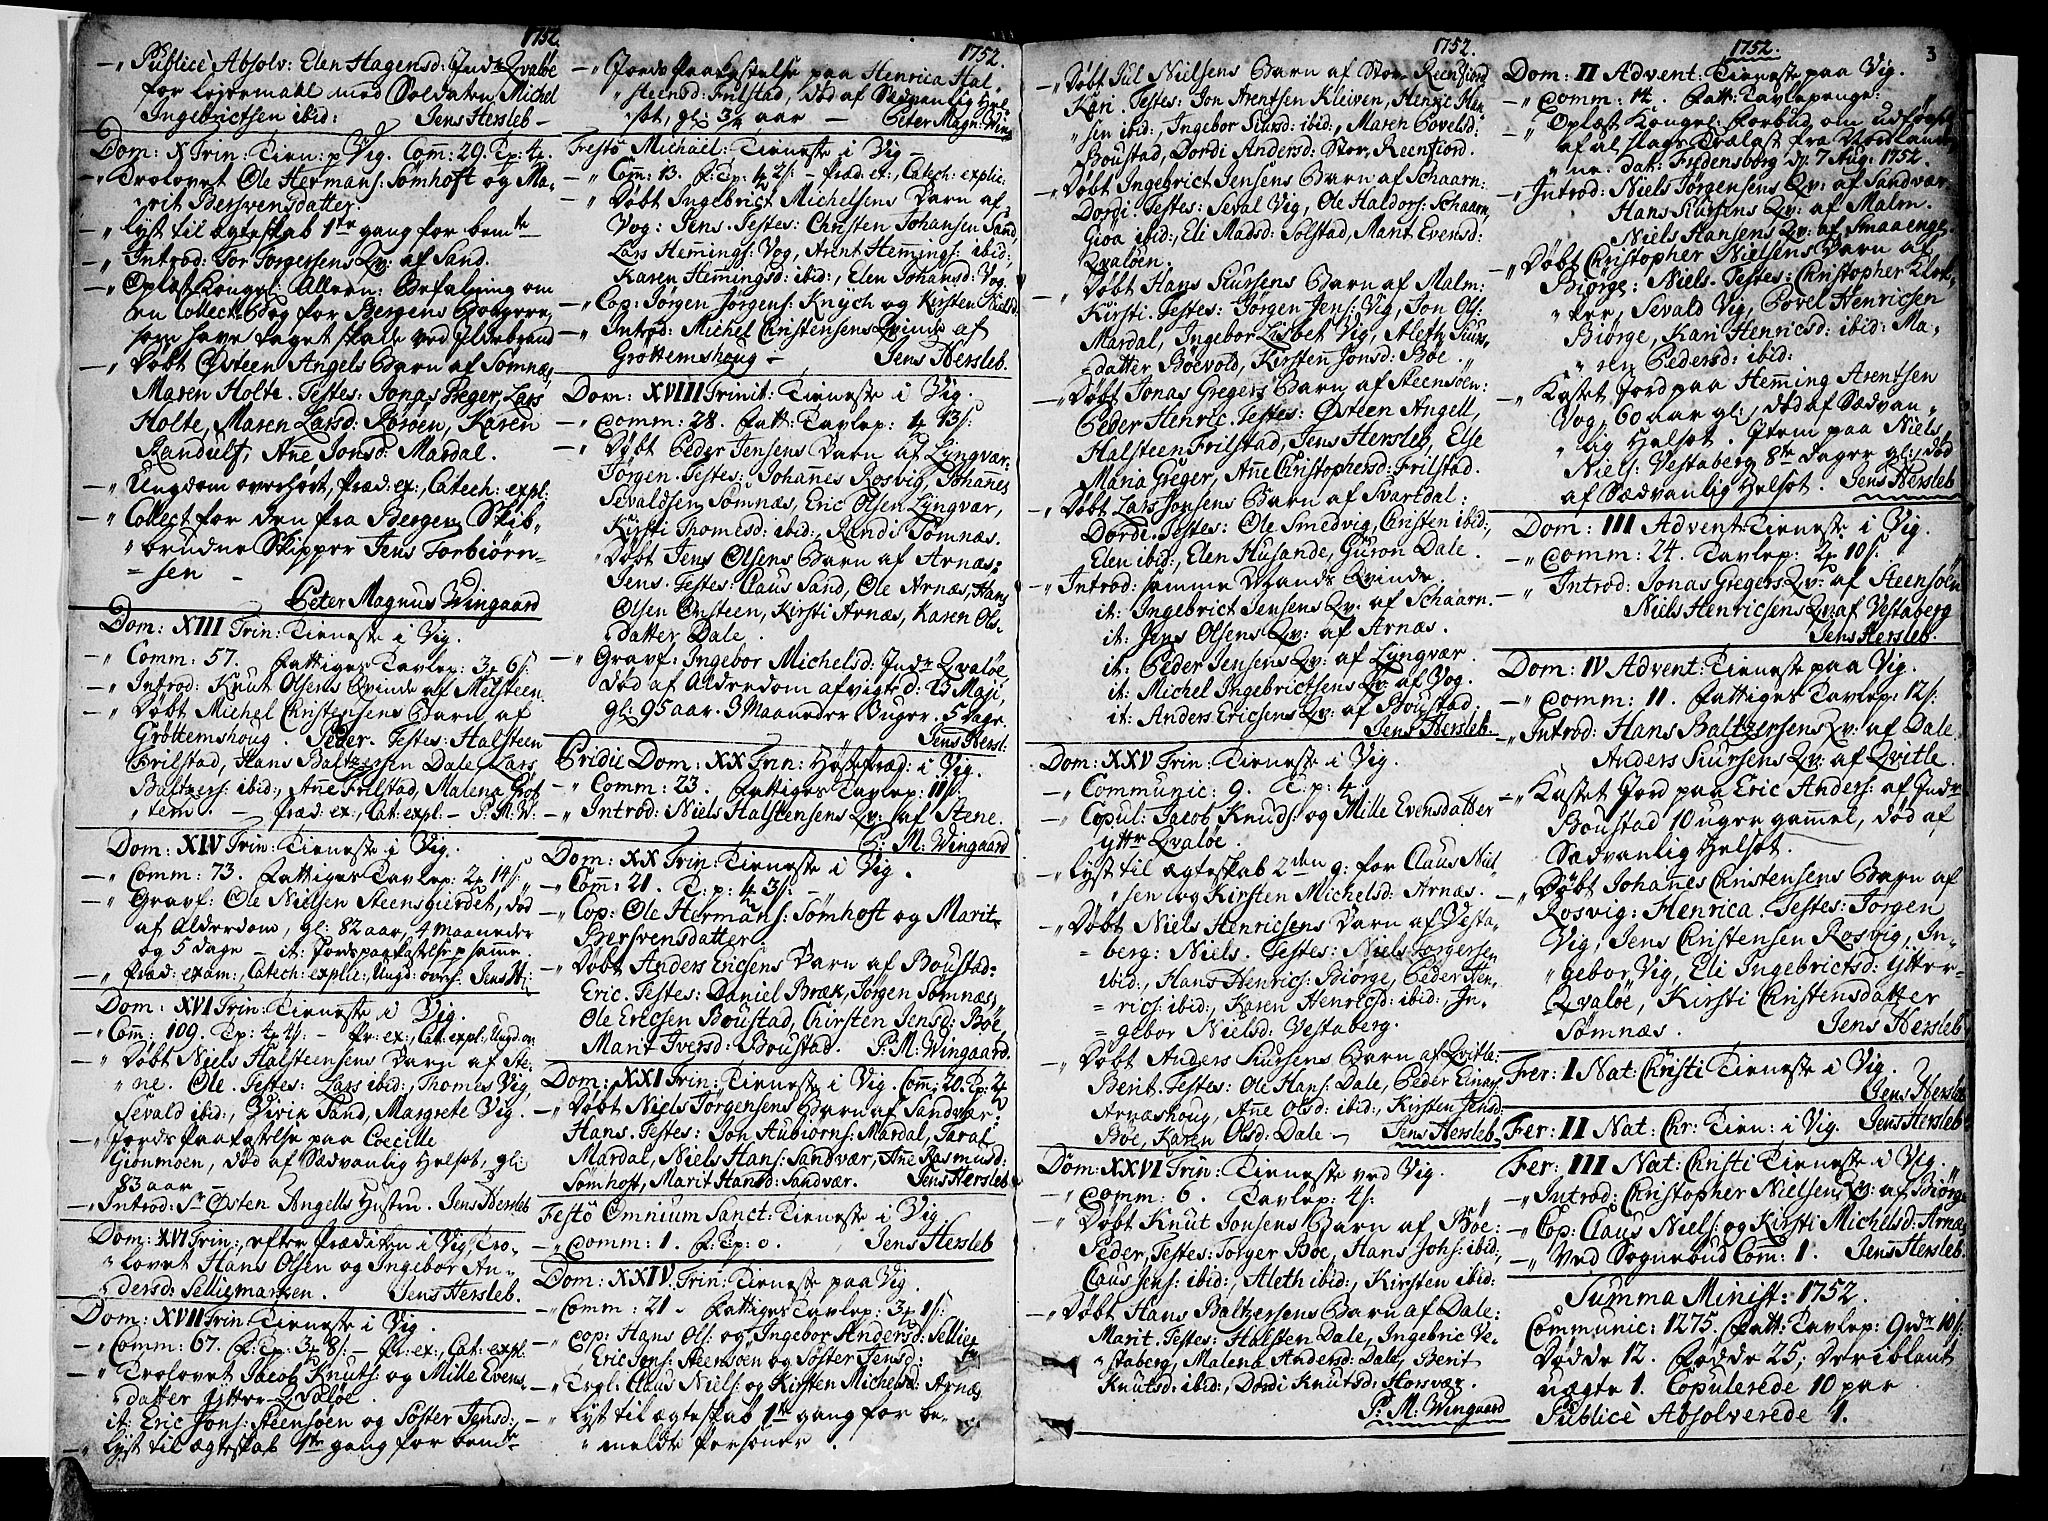 1752.
—„ Publicè Absolv: Elen Hagensd: Indr Qvaløe
for Lejermahl med Soldaten Michel
Ingebrictsen ibid: Jens Hersleb —
Dom: X Trin: Tien: p Vig. Com: 29. Tp: 4
—„ Trolovet Ole Hermans: Sømhoft og Ma-
„rit Bersvensdatter.
—„ lyst til ægteskab 1te gang for bemte
—„ Introd: Tor Torgersens Qv: af Sand.
—„ Oplæst Kongel: Allern: Befaling om
en Collect Bog for Bergens Borgere,
som have taget skade ved Ildebrand
—„ Døbt Østeen Angels Barn af Sømnæs,
Maren Holte. Testes: Jonas Greger, Lars
Holte, Maren Larsd: Rørøen, Karen
Randulf, Añe Jonsd: Mardal.
—„ Ungdom overhørt, Præd: ex:, Catech: expl:
—„ Collect for den fra Bergen Skib-
„brudne Skipper Jens Torbiørn-
=sen —
Peter Magnus Wingaard
Dom: XIII Trin: Tieneste i Vig.
—„ Comm: 57. Fattiges Tavlep: 3 6/:
—„ Introd: Knut Olsens Qvinde af Melsteen.
—„ Døbt Michel Christensens Barn af
Grøttemshoug. Peder. Testes: Halsteen
Frilstad, Hans Baltzersen Dale, Lars
Baltzers: ibid:, Añe Frilstad, Malena Grøt
„tem. — Præd: ex:, Cat: expl: — P: M: W:
Dom: XIV Trin: Tieneste i Vig.
—„ Comm: 73. Fattiges Tavlep: 2 14/:
—„ Gravf: Ole Nielsen Steensgierdet, død
af Alderdom, gl: 82 aar, 4 Maaneder
og 5 dage — it: Jordspaakastelse p samme.
—„ Præd: exam:, Catech: explic:, Ungd: overh: Jens H:
Dom: XVI Trin: Tieneste i Vig.
—„ Com: 109. Tp: 4 4/: — Pr: ex:, Cat: expl:, Ungd ov
—„ Døbt Niels Halsteensens Barn af Ste-
„ne. Ole. Testes: Lars ibid:, Thomas Vig,
Sevald ibid:, Birin Sand, Margrete Vig.
—„ Jords Paakastelse paa Coecille
Gionmoen, død af Sædvanlig Helsot, gl:
83 aar —
—„ Introd: Sr Østen Angells Hustru. Jens Hersleb
Dom: XVI Trin:, efter Prædiken i Vig, Tro-
„lovet Hans Olsen og Ingebor An-
„dersd: Selliemarken. Jens Hersleb.
Dom: XVII Trin: Tieneste i Vig.
—„ Comm: 67. F: Tp: 3 8/: — Pr: ex:, Cat: expl:
—„ Trolovet Jacob Knuts: og Mille Evens-
„datter Ytter Qvaløe.
it: Eric Jons: Steensøen og Søster Jensd:
—„ Lyst til ægteskab 1te gang for bemte
1752.
—„ Jords Paakastelse paa Henrica Hal„
„steensd: Frilstad, død af Sædvanlig Hel-
sot, gl: 3/4 aar — Peter Magn: Wing
Festô Michael: Tieneste i Vig —
—„ Com: 13. F: Tp: 4 2/: — Præd: it:, Catech: explic:
—„ Døbt Ingebrict Michelsens Barn af
Vog: Jens. Testes: Christen Johansen Sand,
Lars Hemings: Vog, Arent Hemings: ibid:,
Karen Hemingsd: ibid:, Elen Johansd: Vog.
—„ Cop: Jørgen Jørgens: Knÿch og Kirsten Nielsd:
—„ Introd: Michel Christensens Qvinde af
Grøttemshoug — Jens Hersleb.
Dom: XVIII Trinit: Tieneste i Vig.
—„ Comm: 28. Fatt: Tavlep: 4 13/:
—„ Døbt Peder Jensens Barn af Lyngvær.
Jørgen. Testes: Johañes Rosvig, Johañes
Sevaldsen Sømnæs, Eric Olsen Lyngvær,
Kirsti Thomesd: ibid:, Randi Sømnæs.
„ Døbt Jens Olsens Barn af Arnæs:
Jens. Testes: Claus Sand, Ole Arnæs, Hans
Olsen Ønsteen, Kirsti Arnæs, Karen Ols-
„datter Dale.
—„ Gravf: Ingebor Michelsd: Indr Qvaløe,
død af Alderdom afvigte d: 13 Maji,
gl: 95 aar. 3 Maaneder Buger. 5 dage.
Jens Hersl:
Pridie Dom: XX Trin: Høstpræd: i Vig.
—„ Comm: 23. Fattiges Tavlep: 11/:
—„ Introd: Niels Halstensens Qv: af Stene.
P: M: Wingaard
Dom: XX Trin: Tieneste i Vig.
—„ Com: 21. T: p: 4 3/: —
—„ Cop: Ole Hermans: Sømhoft og Marit-
Bersvensdatter
—„ Døbt Anders Ericsens Barn af Boustad:
Eric. Testes: Daniel Bræk, Jørgen Sømnæs,
Ole Ericsen Boustad, Chirsten Jensd: Bøe,
Marit Iversd: Boustad. P: M: Wingaard.
Dom: XXI Trin: Tieneste i Vig. Com: 20. Tp: 2
—„ Døbt Niels Jørgensens Barn af Sandvær.
Hans. Testes: Jon Aubiørns: Mardal, Taral
Mardal, Niels Hans: Sandvær, Añe Rasmusd:
Sømhoft, Marit Hansd: Sandvær. Jens Hersleb
Festô Omnium Sanct: Tieneste i Vig
—„ Comm: 1. F: Tp: 0. Jens Hersleb
Dom: XXIV. Trin: Tieneste paa Vig.
—„ Comm: 21. Fattiges Tavlep: 3 1/:
—„ Cop: Hans Ols: og Ingebor Andersd: Sellie
„ Eric Jons: Steensøen og Søster Jensd:
—„ Trol: Claus Niels: og Kirsten Michelsd: Arnæs
—„ Lyst til ægteskab 1te gang for be-
„ meldte Personer.
1752.
—„ Døbt Siul Nielsens Barn af Stor-Reenfiord
Kari. Testes: Jon Arentsen Kleiven, Henric Han
„sen ibid:, Ingebor Siursd: ibid:, Maren Povelsd:
Boustad, Dordi Andersd: Stor-Reenfiord.
—„ Døbt Ingebrict Jensens Barn af Schaarn:
Dordi. Testes: Seval Vig, Ole Haldors: Schaarn,
Giøa ibid:, Eli Madsd: Solstad, Marit Evensd:
Qvaløen.
—„ Døbt Hans Siursens Barn af Malm:
Kirsti. Testes: Jørgen Jens: Vig, Jon Ols:
Mardal, Ingebor Lisbet Vig, Aleth Siurs-
„datter Boevold, Kirsten Jonsd: Bøe.
—„ Døbt Jonas Gregers Barn af Steensøen:
Peder Henric. Testes: Østeen Angell,
Halsteen Frilstad, Jens Hersleb, Else
Maria Greger, Añe Christophersd: Frilstad.
—„ Døbt Lars Jonsens Barn af Svartdal:
Dordi. Testes: Ole Smedvig, Christen ibid:,
Elen ibid:, Elen Husande, Guron Dale.
—„ Introd: samme Mands Qvinde.
it: Ingebrict Jensens Qv: af Schaarn.
it: Jens Olsens Qv: af Arnæs.
it: Peder Jensens Qv: af Lyngvær.
it: Michel Ingebrictsens Qv: af Vog.
it: Anders Ericsens Qv: af Boustad.
Jens Hersleb.
Dom: XXV Trin: Tieneste i Vig.
—„ Communic: 9. T: p: 4
—„ Copul: Jacob Knuds: og Mille Evensdatter
yttr Qvaløe.
—„ Lyst til ægteskab 2den g: for Claus Niel
„sen og Kirsten Michelsd: Arnæs.
—„ Døbt Niels Henricsens Barn af Vesta-
=berg: Niels. Testes: Niels Torgersen
ibid:, Hans Henrics: Biørge, Peder Hen-
=rics: ibid:, Karen Henricsd: ibid: In-
=gebor Nielsd: Vestaberg.
—„ Døbt Anders Siursens Barn af Qvitle:
Berit. Testes: Ole Hans: Dale, Peder Einars
Arnæshoug, Añe Olsd: ibid:, Kirsten Jensd:
Bøe, Karen Olsd: Dale — Jens Hersleb
Dom: XXVI Trin: Tieneste ved Vig.
—„ Comm: 6. Tavlep: 4/:
—„ Døbt Knut Jonsens Barn af Bøe:
Peder, Testes: Torger Bøe, Hans Johs: ibid:,
Claus Jens: ibid:, Aleth ibid:, Kirsten ibid:
—„ Døbt Hans Baltzersens Barn af Dale:
Marit. Testes: Halsten Dale, Ingebric Ve-
„staberg, Malena Andersd: Dale, Berit
Knutsd: ibid:, Dordi Knutsd: Horsvær.
P: M: Wingaard
1752.
3
Dom: II Advent: Tieneste paa Vig.
—„ Comm: 14. Fatt: Tavlepenge:
—„ Oplæst Kongel: Forbud om Udførsel
af al slags Trælast fra Nordlande„
„ne. dat: Fredensborg d: 7 Aug: 1752.
—„ Introd: Niels Jørgensens Qv: af Sandvær
Hans Siursens Qv: af Malm.
Niels Hansens Qv: af Smaaenge.
—„ Døbt Christopher Nielsens Barn af
Biørge: Niels. Testes: Christopher Klok„
„ker, Sevald Vig, Povel Henricsen
Biørge, Kari Henricsd: ibid: Ma-
„ren Pedersd: ibid:
—„ Kastet Jord paa Heming Arentsen
Vog, 60 aar gl:, død af Sædvan„
„lig Helsot. Item paa Niels
Niels: Vestaberg 8te dager gl:, død
af Sædvanlig Helsot. Jens Hersleb
Dom: III Advent: Tieneste i Vig.
—„ Comm: 24. Tavlep: 2 10/:
—„ Introd: Jonas Gregers Qv: af Steensøen
Niels Henricsens Qv: af Vestaberg
Jens Hersleb.
Dom: IV Advent: Tieneste paa Vig.
—„ Comm: 11. Fattiges Tavlep: 12/:
—„ Introd: Hans Baltzersens Qv: af Dale
Anders Siursens Qv: af Qvitle.
—„ Kastet Jord paa Eric Anders: af Indr
Boustad 10 uger gammel, død af
Sædvanlig Helsot.
—„ Døbt Johanes Christensens Barn af
Rosvig: Henrica. Testes: Jørgen
Vig, Jens Christensen Rosvig, In-
„gebor Vig, Eli Ingebrictsd: ytter-
Qvaløe, Kirsti Christensdatter
Sømnæs. Jens Hersleb
Fer: I Nat: Christi Tieneste i Vig.
Jens Hersleb
Fer: II Nat: Chr: Tien: i Vig. Jens Hersleb
Fer: III Nat: Christi Tieneste i Vig.
—„ Introd: Christopher Nielsens Qv: af Biørge
—„ Cop: Claus Niels: og Kirsti Michelsd: Arnæs
—„ Ved Sognebud Com: 1. Jens Hersleb.
Summa Minist: 1752.
Communic: 1275. Fatt: Tavlep: 9rdr 10/:
Dødde 12. Fødde 25, deriblant
uægte 1. Copulerede 10 par
Publicè Absolverede 1.